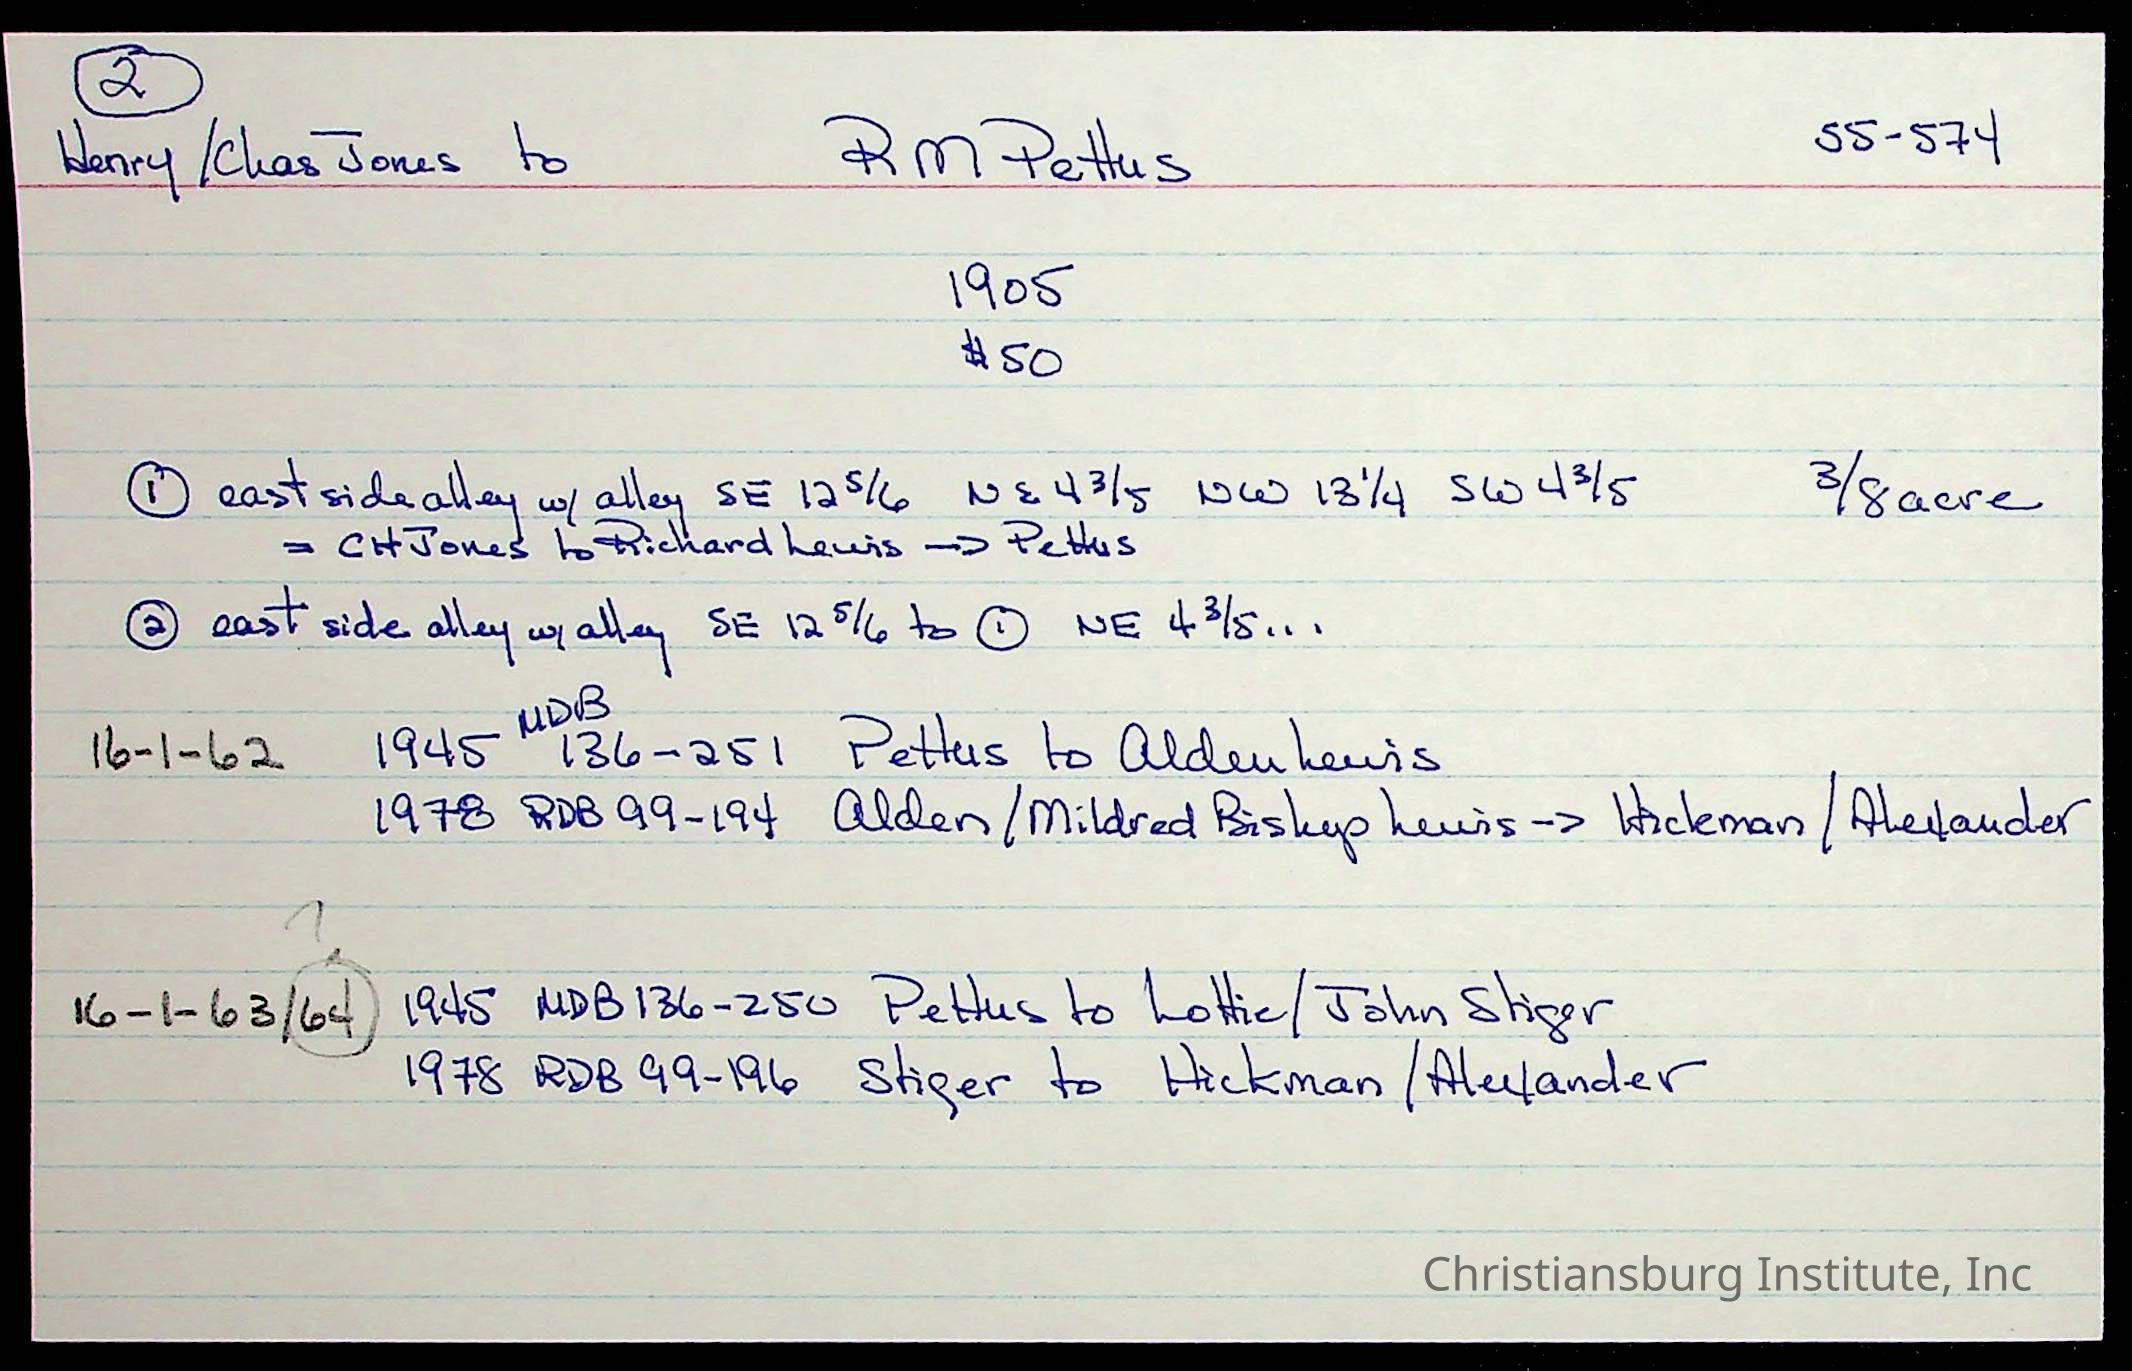 2
Henry/Chas Jones to RM Pettus 55-574
1905
$50
① east side alley w/ alley SE 12 5/6 NE 4 3/5 NW 13 1/4 SW 4 3/5 3/8 acre
= CH Jones to Richard Lewis -> Pettus
② east side alley w/ alley SE 12 5/6 to ① NE 4 3/5...
16-1-62 1945 MDB 136-251 Pettus to Alden Lewis
1978 RDB 99-194 Alden/Mildred Biskup Lewis -> Hickman/Alexander
?
16-1-63/64 1945 MDB 136-250 Pettus to Lottie/John Stiger
1978 RDB 99-196 Stiger to Hickman/Alexander
Christiansburg Institute, Inc